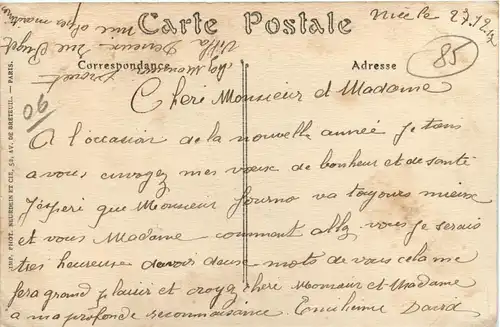 Carte Postale
Nice le 23.12.12
85
Correspondance
Adresse
06
Villa
Chéré Monsieur et Madame
A l'occasion de la nouvelle année je tans
a vous envoyez mes vœux de bonheur et de santé
J'espéré que Monsieur Journo va toujours mieux
et vous Madame comment allz vous je serais
tres heureuse davoir deuse mots de vous cela me
fera grand plaisir et croyez chere Monsieur et Madame
a ma profonde reconnaissance. David
IMP. PHOT. NEURDEIN ET CIE, 52, AV. DE BRETEUIL. — PARIS.